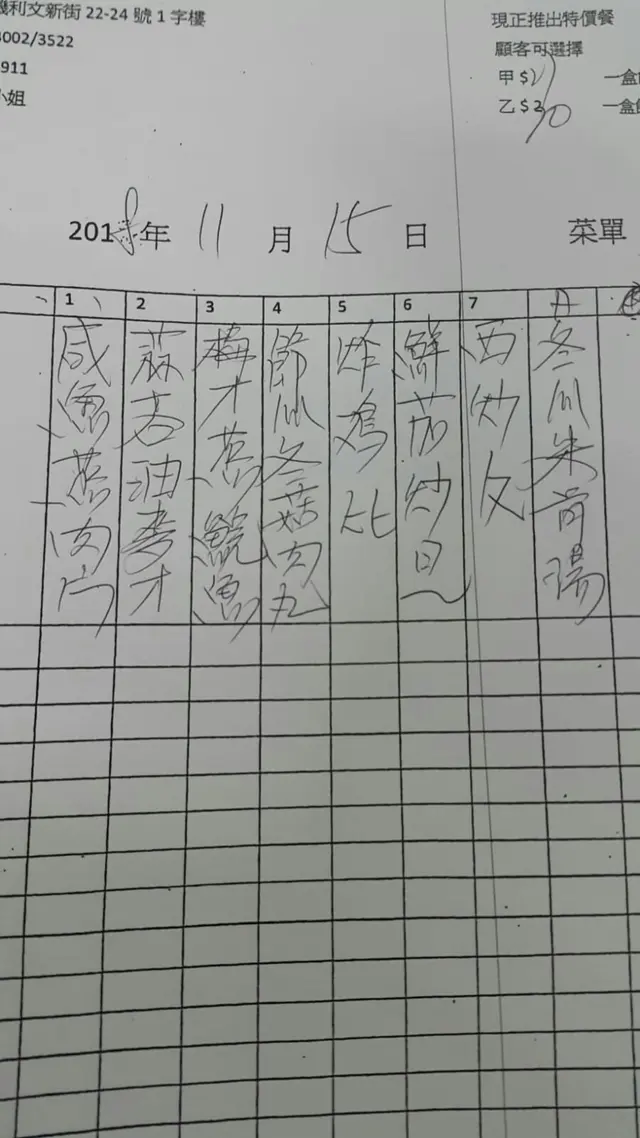 利文新街 22-24 號 1 字樓
4002/3522
911
小姐
現正推出特價餐
顧客可選擇
甲 $ 一盒
乙 $ 一盒
2018年 11 月 15 日 菜單
1 2 3 4 5 6 7
咸魚蒸肉
蒜蓉油麥才
梅才蒸鯇魚
節瓜冬菇肉丸
炸鸡比
鮮茄炒日
西炒
冬瓜